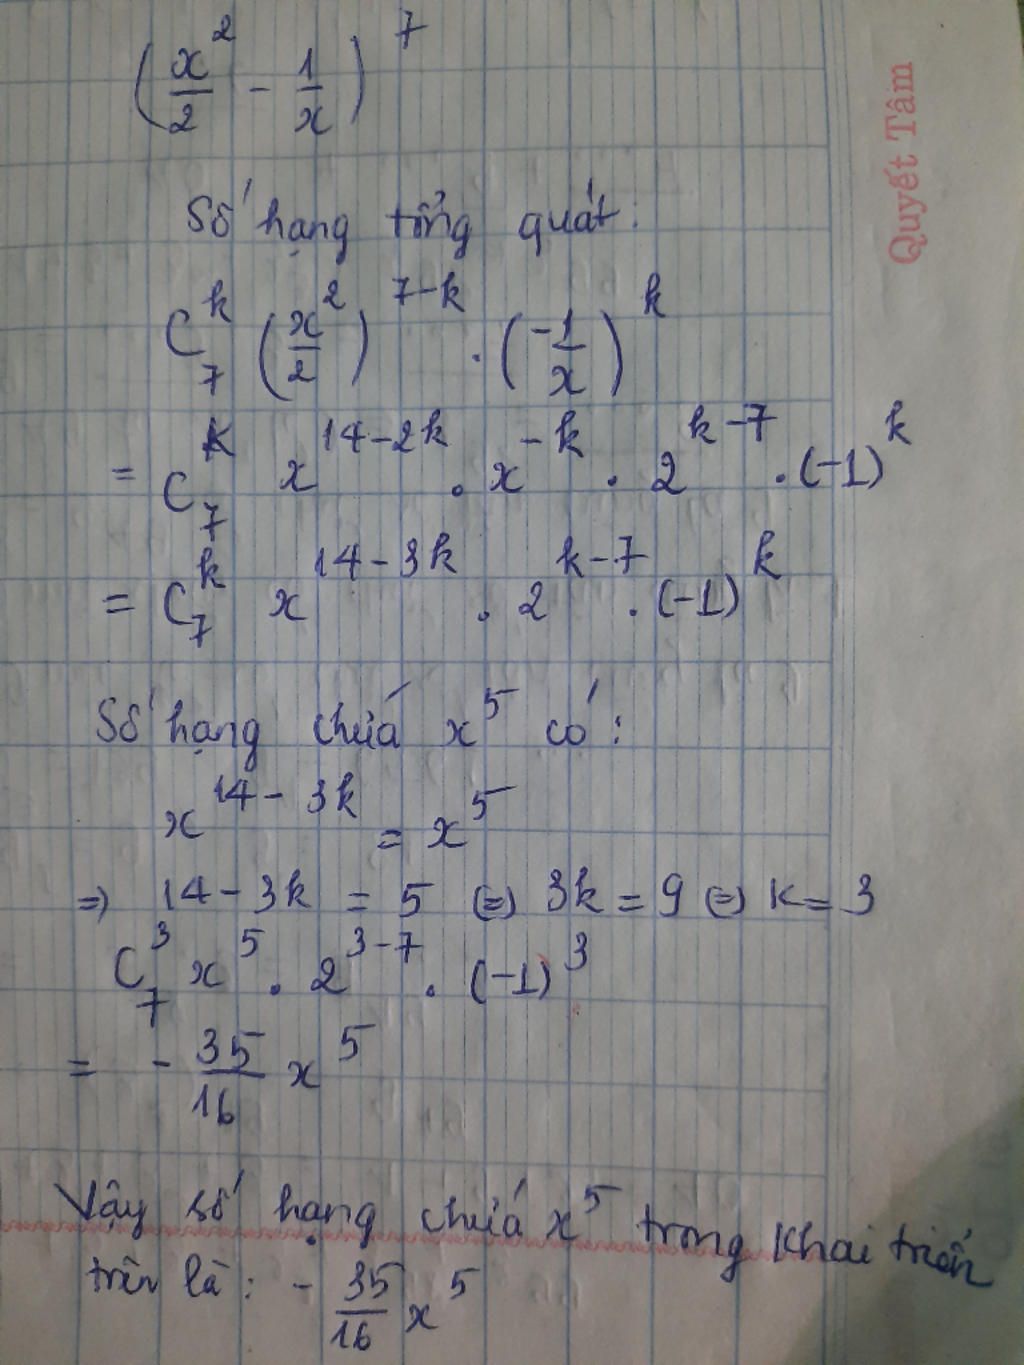 (x²/2 - 1/x)⁷
Quyết Tâm
Số hạng tổng quát:
C₇ᵏ (x²/2)⁷⁻ᵏ . (-1/x)ᵏ
= C₇ᵏ x¹⁴⁻²ᵏ . x⁻ᵏ . 2ᵏ⁻⁷ . (-1)ᵏ
= C₇ᵏ x¹⁴⁻³ᵏ . 2ᵏ⁻⁷ . (-1)ᵏ
Số hạng chứa x⁵ có:
x¹⁴⁻³ᵏ = x⁵
⇒ 14-3k = 5 ⇔ 3k = 9 ⇔ k = 3
C₇³ x⁵ . 2³⁻⁷ . (-1)³
= - 35/16 x⁵
Vậy số hạng chứa x⁵ trong khai triển
trên là: - 35/16 x⁵